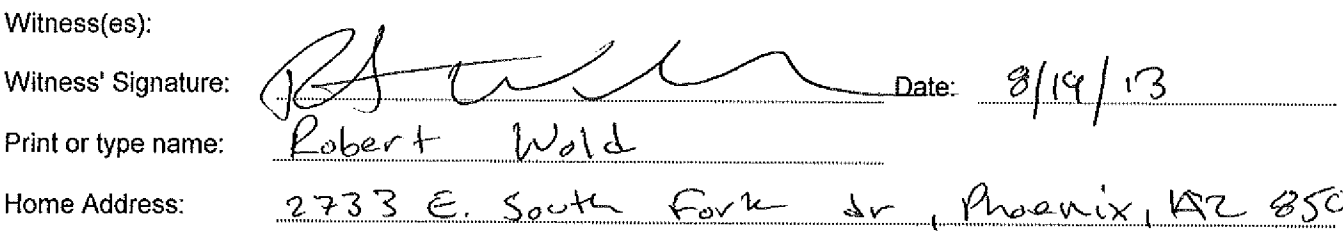 Witness(es):
Witness' Signature: Date: 8/19/13
Print or type name: Robert Wold
Home Address: 2733 E. South Fork dr, Phoenix, AZ 850